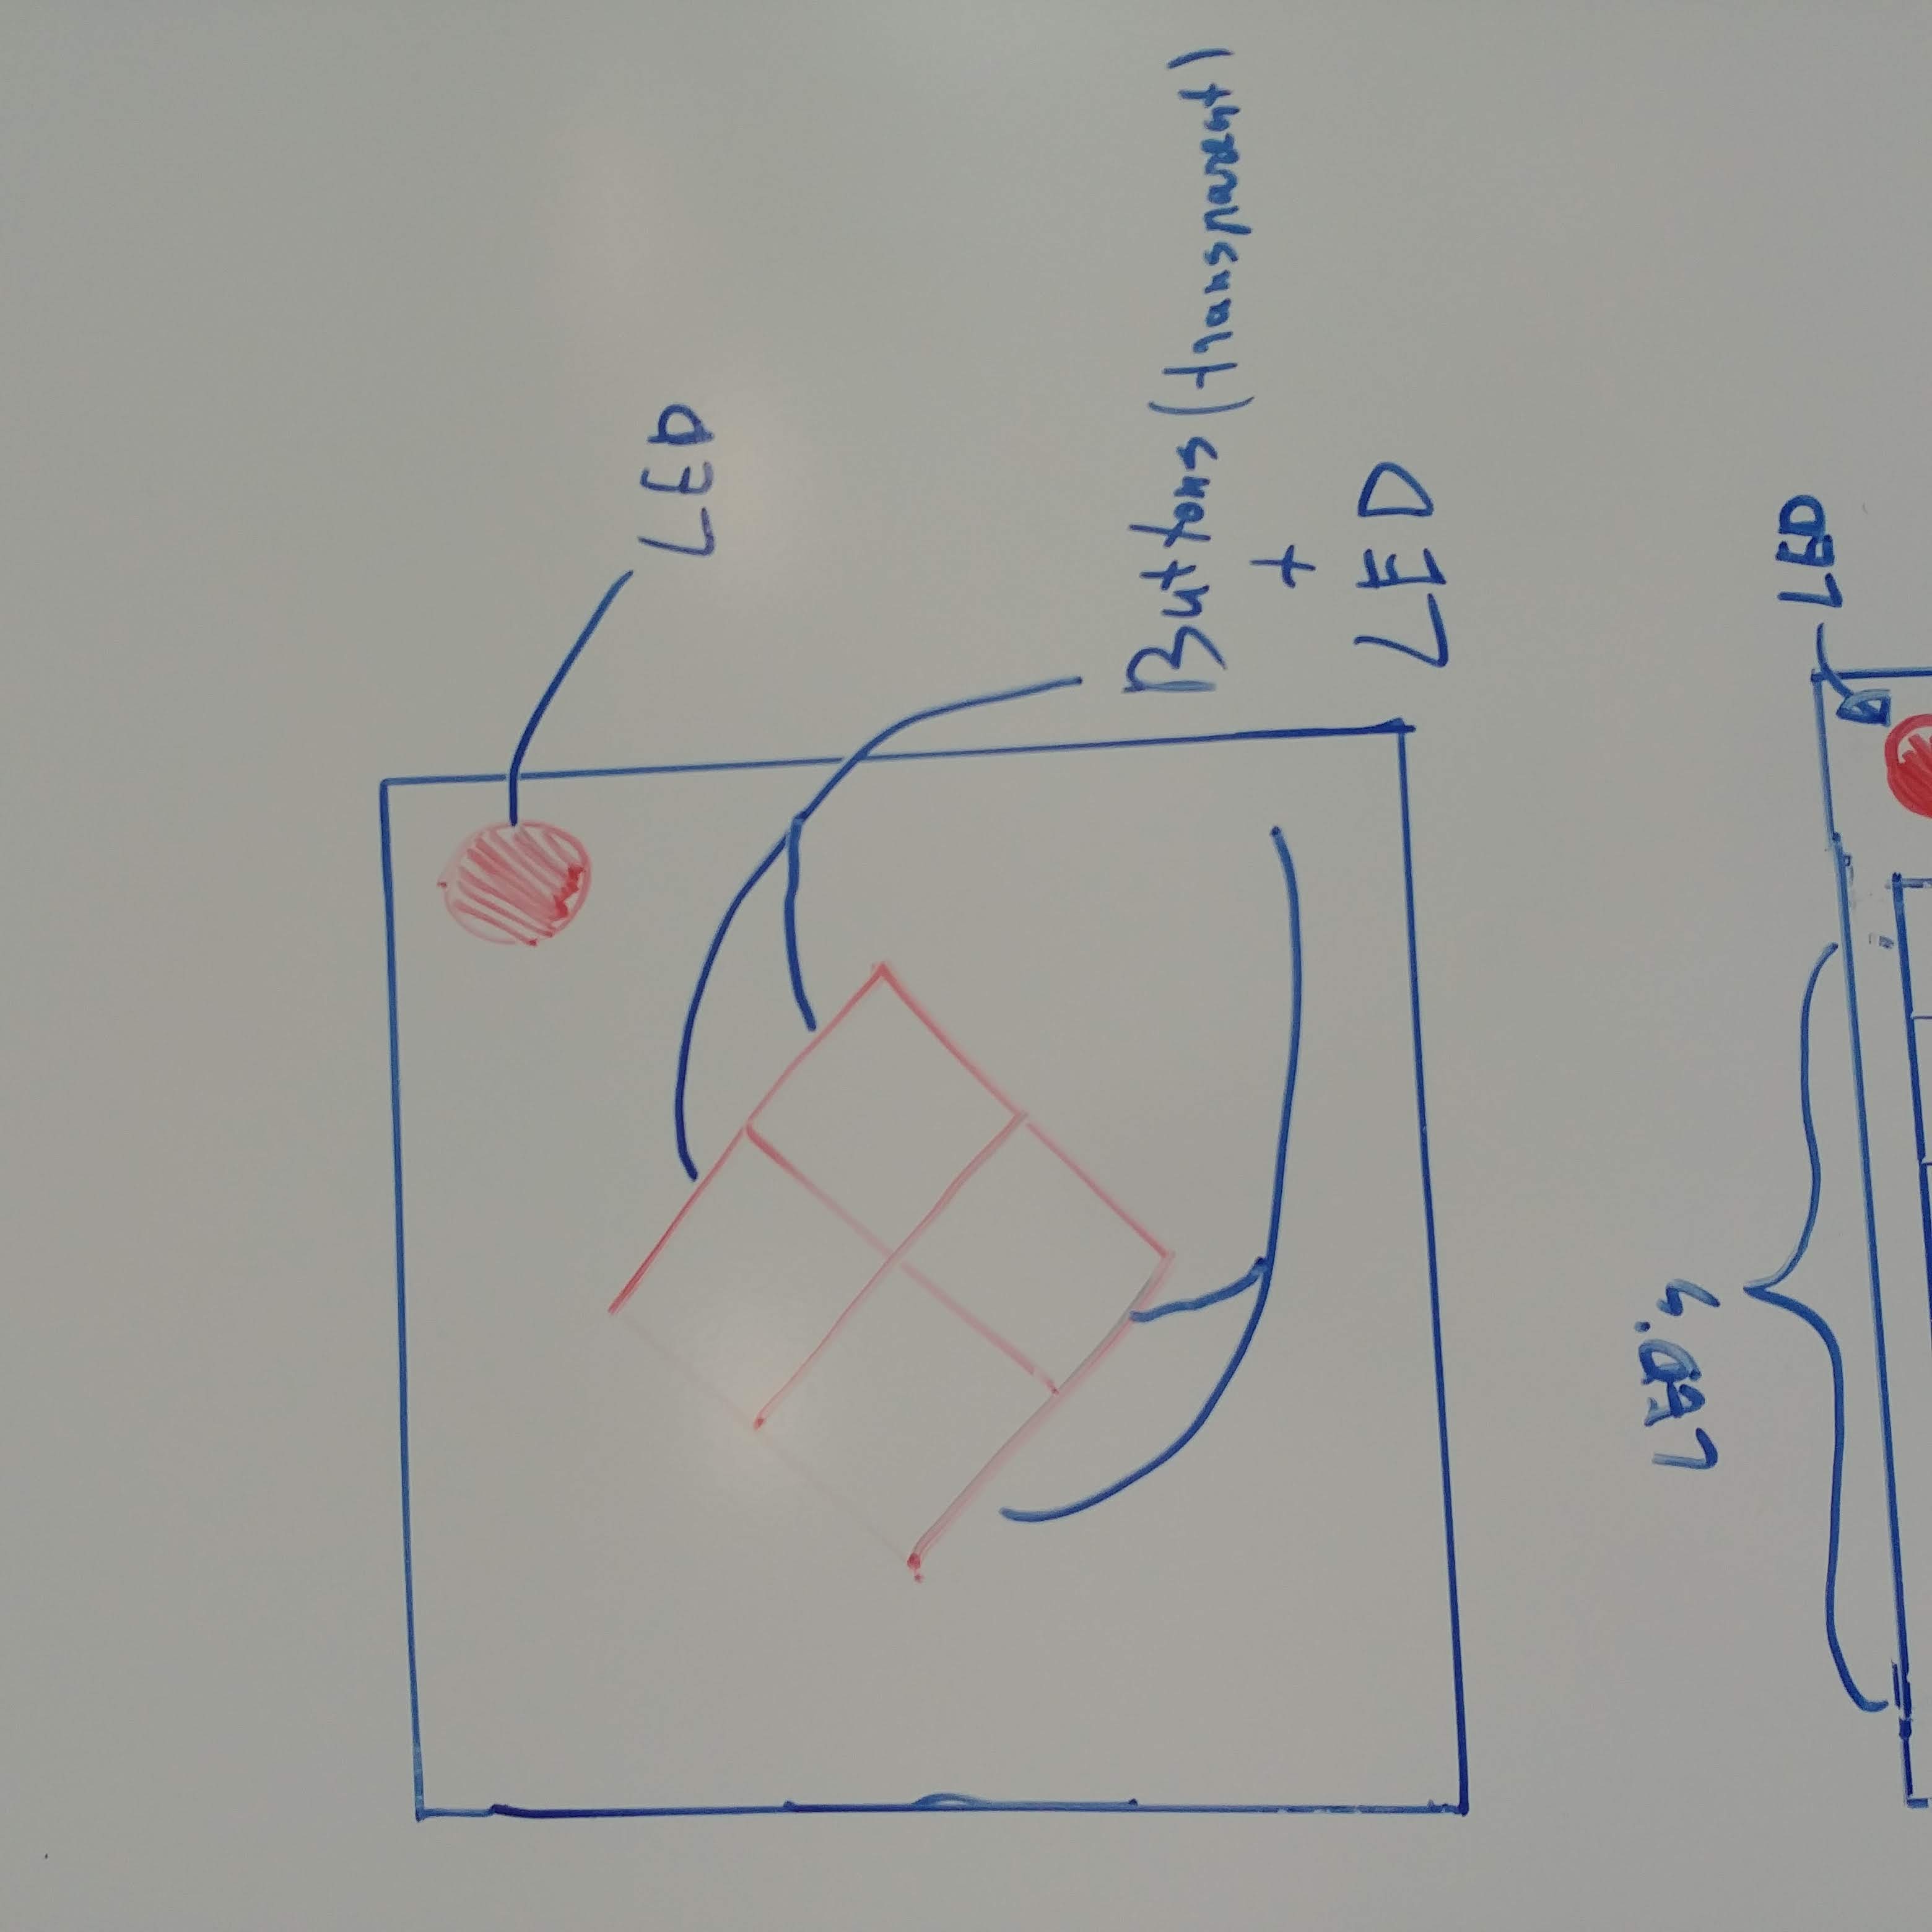 LED
Buttons (transparent)
+
LED
LED's
LED